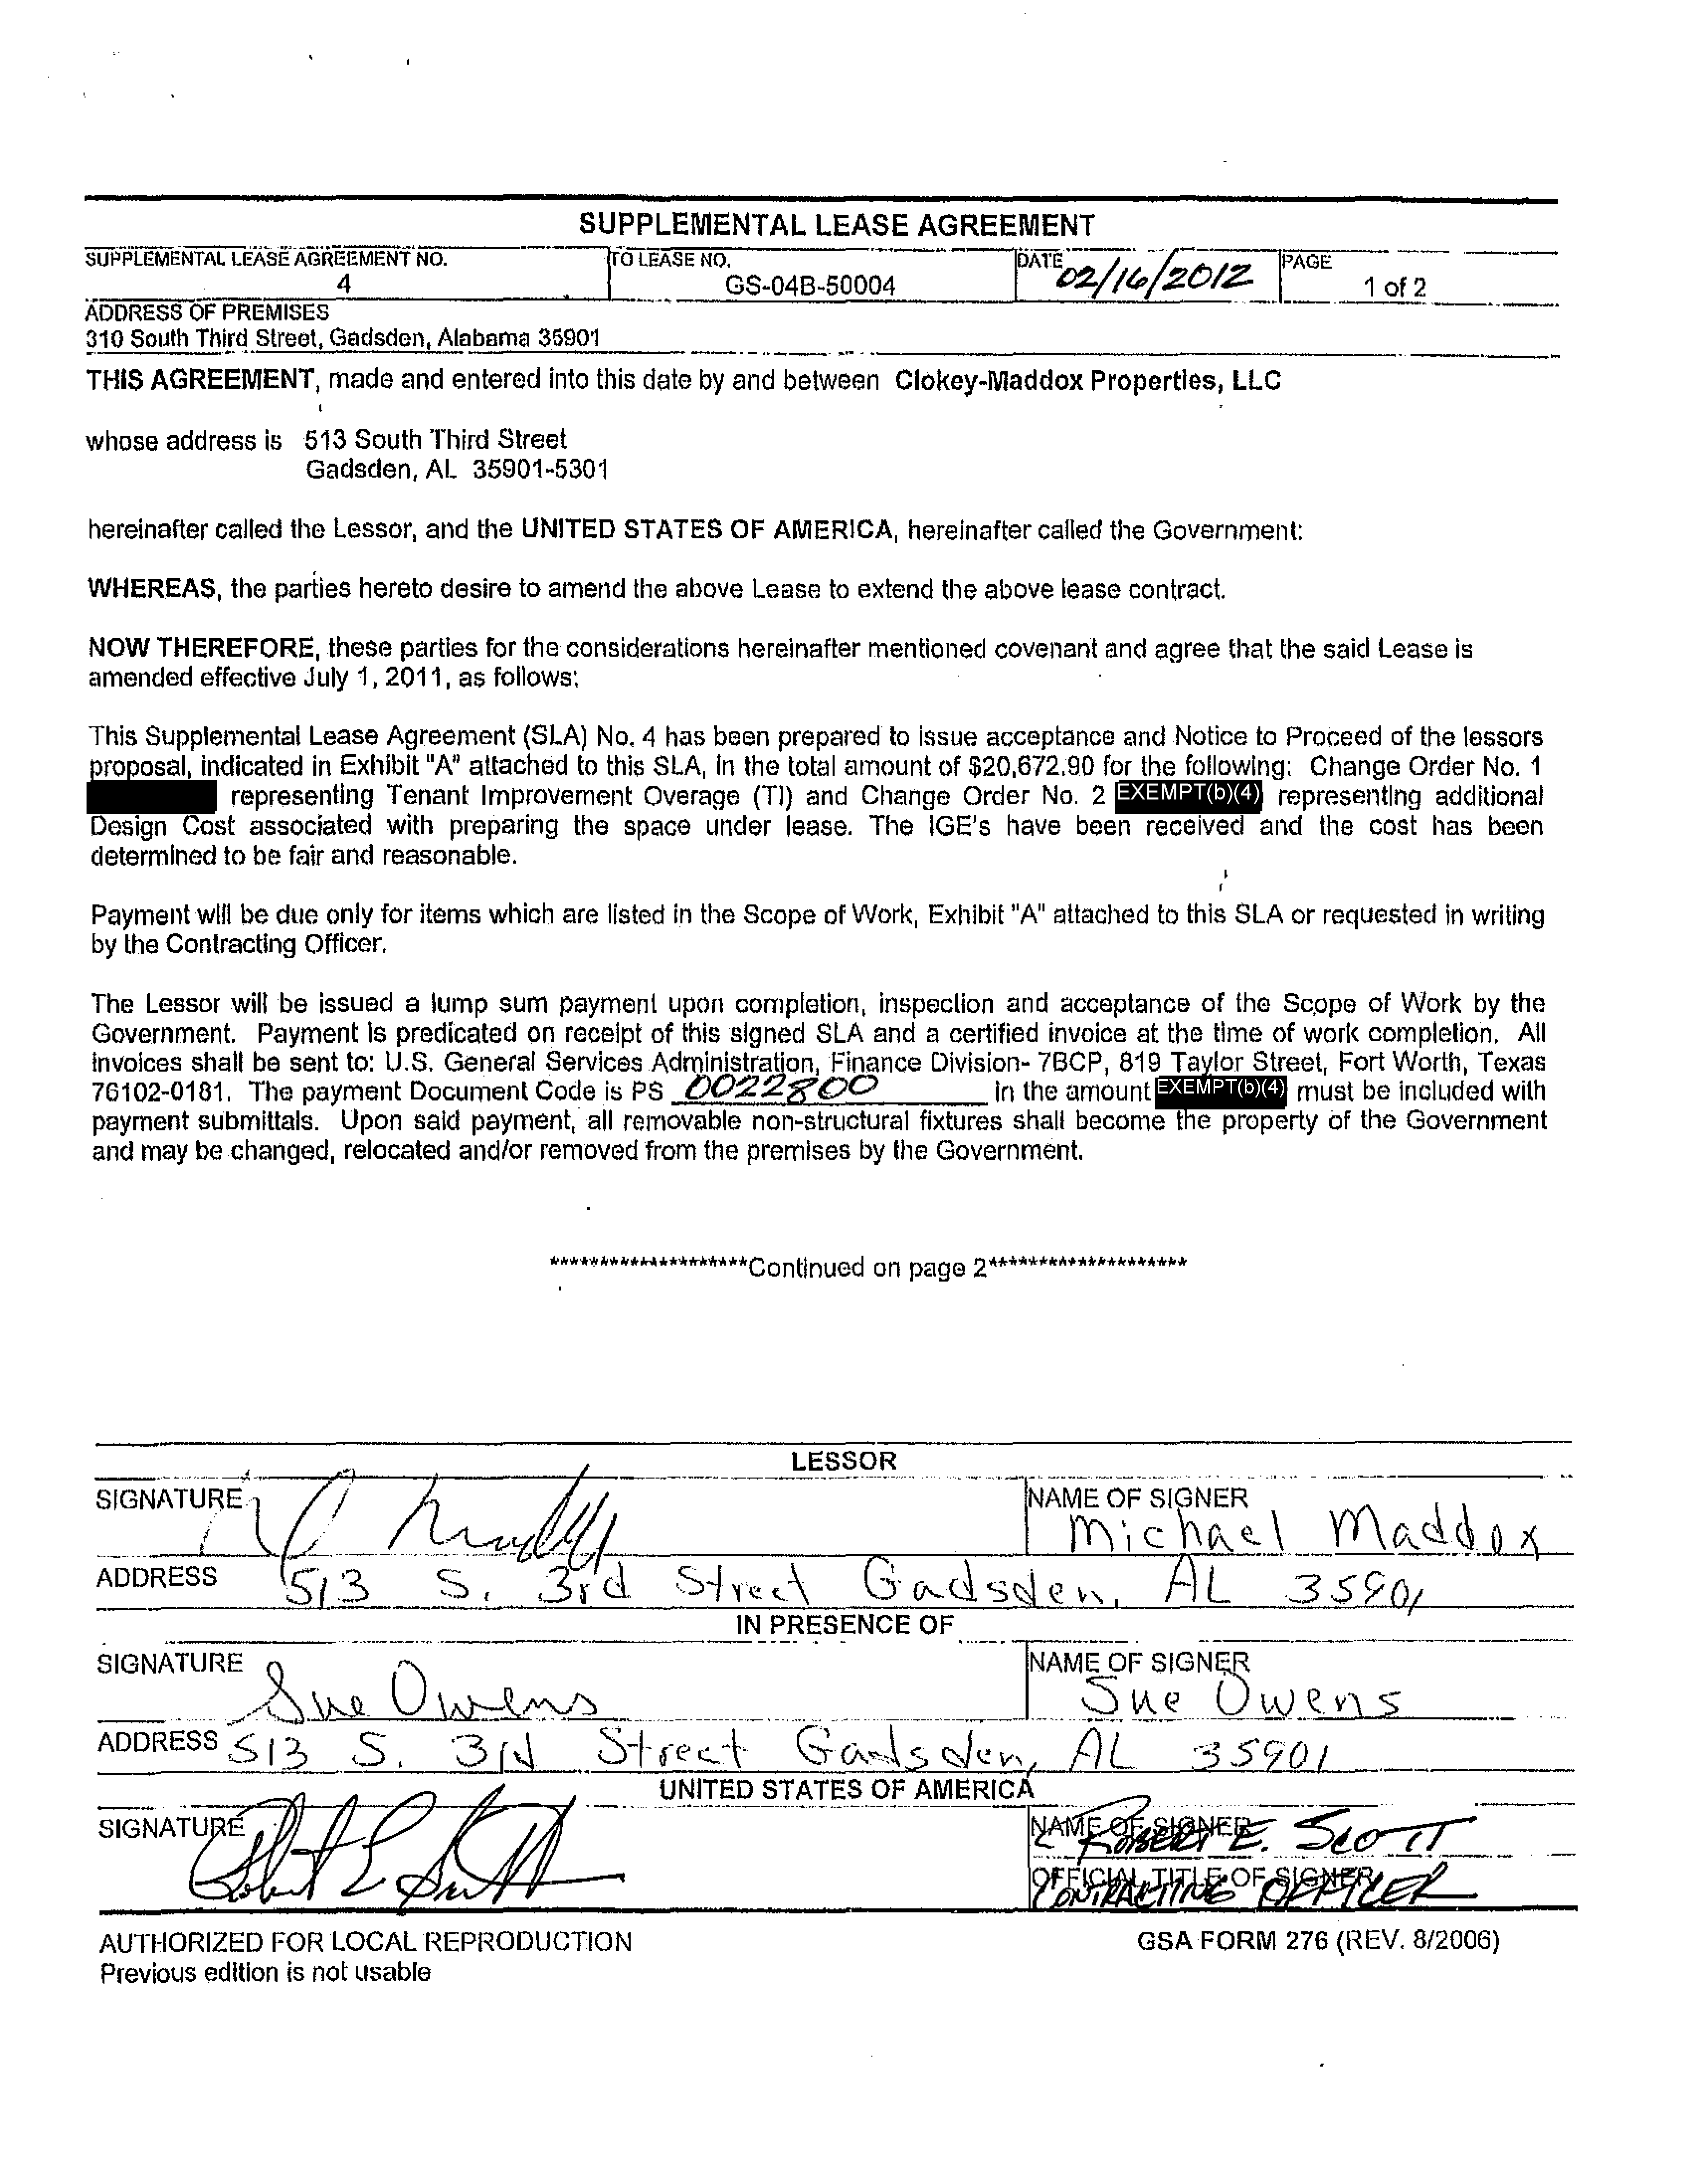 SUPPLEMENTAL LEASE AGREEMENT
SUPPLEMENTAL LEASE AGREEMENT NO.
4
TO LEASE NO.
GS-04B-50004
DATE
02/16/2012
PAGE
1 of 2
ADDRESS OF PREMISES
310 South Third Street, Gadsden, Alabama 35901
THIS AGREEMENT, made and entered into this date by and between Clokey-Maddox Properties, LLC
whose address is 513 South Third Street
Gadsden, AL 35901-5301
hereinafter called the Lessor, and the UNITED STATES OF AMERICA, hereinafter called the Government:
WHEREAS, the parties hereto desire to amend the above Lease to extend the above lease contract.
NOW THEREFORE, these parties for the considerations hereinafter mentioned covenant and agree that the said Lease is
amended effective July 1, 2011, as follows:
This Supplemental Lease Agreement (SLA) No. 4 has been prepared to issue acceptance and Notice to Proceed of the lessors
proposal, indicated in Exhibit "A" attached to this SLA, in the total amount of $20,672.90 for the following: Change Order No. 1
representing Tenant Improvement Overage (TI) and Change Order No. 2 EXEMPT(b)(4) representing additional
Design Cost associated with preparing the space under lease. The IGE's have been received and the cost has been
determined to be fair and reasonable.
Payment will be due only for items which are listed in the Scope of Work, Exhibit "A" attached to this SLA or requested in writing
by the Contracting Officer.
The Lessor will be issued a lump sum payment upon completion, inspection and acceptance of the Scope of Work by the
Government. Payment is predicated on receipt of this signed SLA and a certified invoice at the time of work completion. All
invoices shall be sent to: U.S. General Services Administration, Finance Division- 7BCP, 819 Taylor Street, Fort Worth, Texas
76102-0181. The payment Document Code is PS 0022800 in the amount EXEMPT(b)(4) must be included with
payment submittals. Upon said payment, all removable non-structural fixtures shall become the property of the Government
and may be changed, relocated and/or removed from the premises by the Government.
********************Continued on page 2********************
LESSOR
SIGNATURE
NAME OF SIGNER
Michael Maddox
ADDRESS 513 S. 3rd Street Gadsden, AL 35901
IN PRESENCE OF
SIGNATURE
Sue Owens
NAME OF SIGNER
Sue Owens
ADDRESS 513 S. 3rd Street Gadsden, AL 35901
UNITED STATES OF AMERICA
SIGNATURE
Robert E Scott
NAME OF SIGNER
ROBERT E. SCOTT
OFFICIAL TITLE OF SIGNER
CONTRACTING OFFICER
AUTHORIZED FOR LOCAL REPRODUCTION
Previous edition is not usable
GSA FORM 276 (REV. 8/2006)